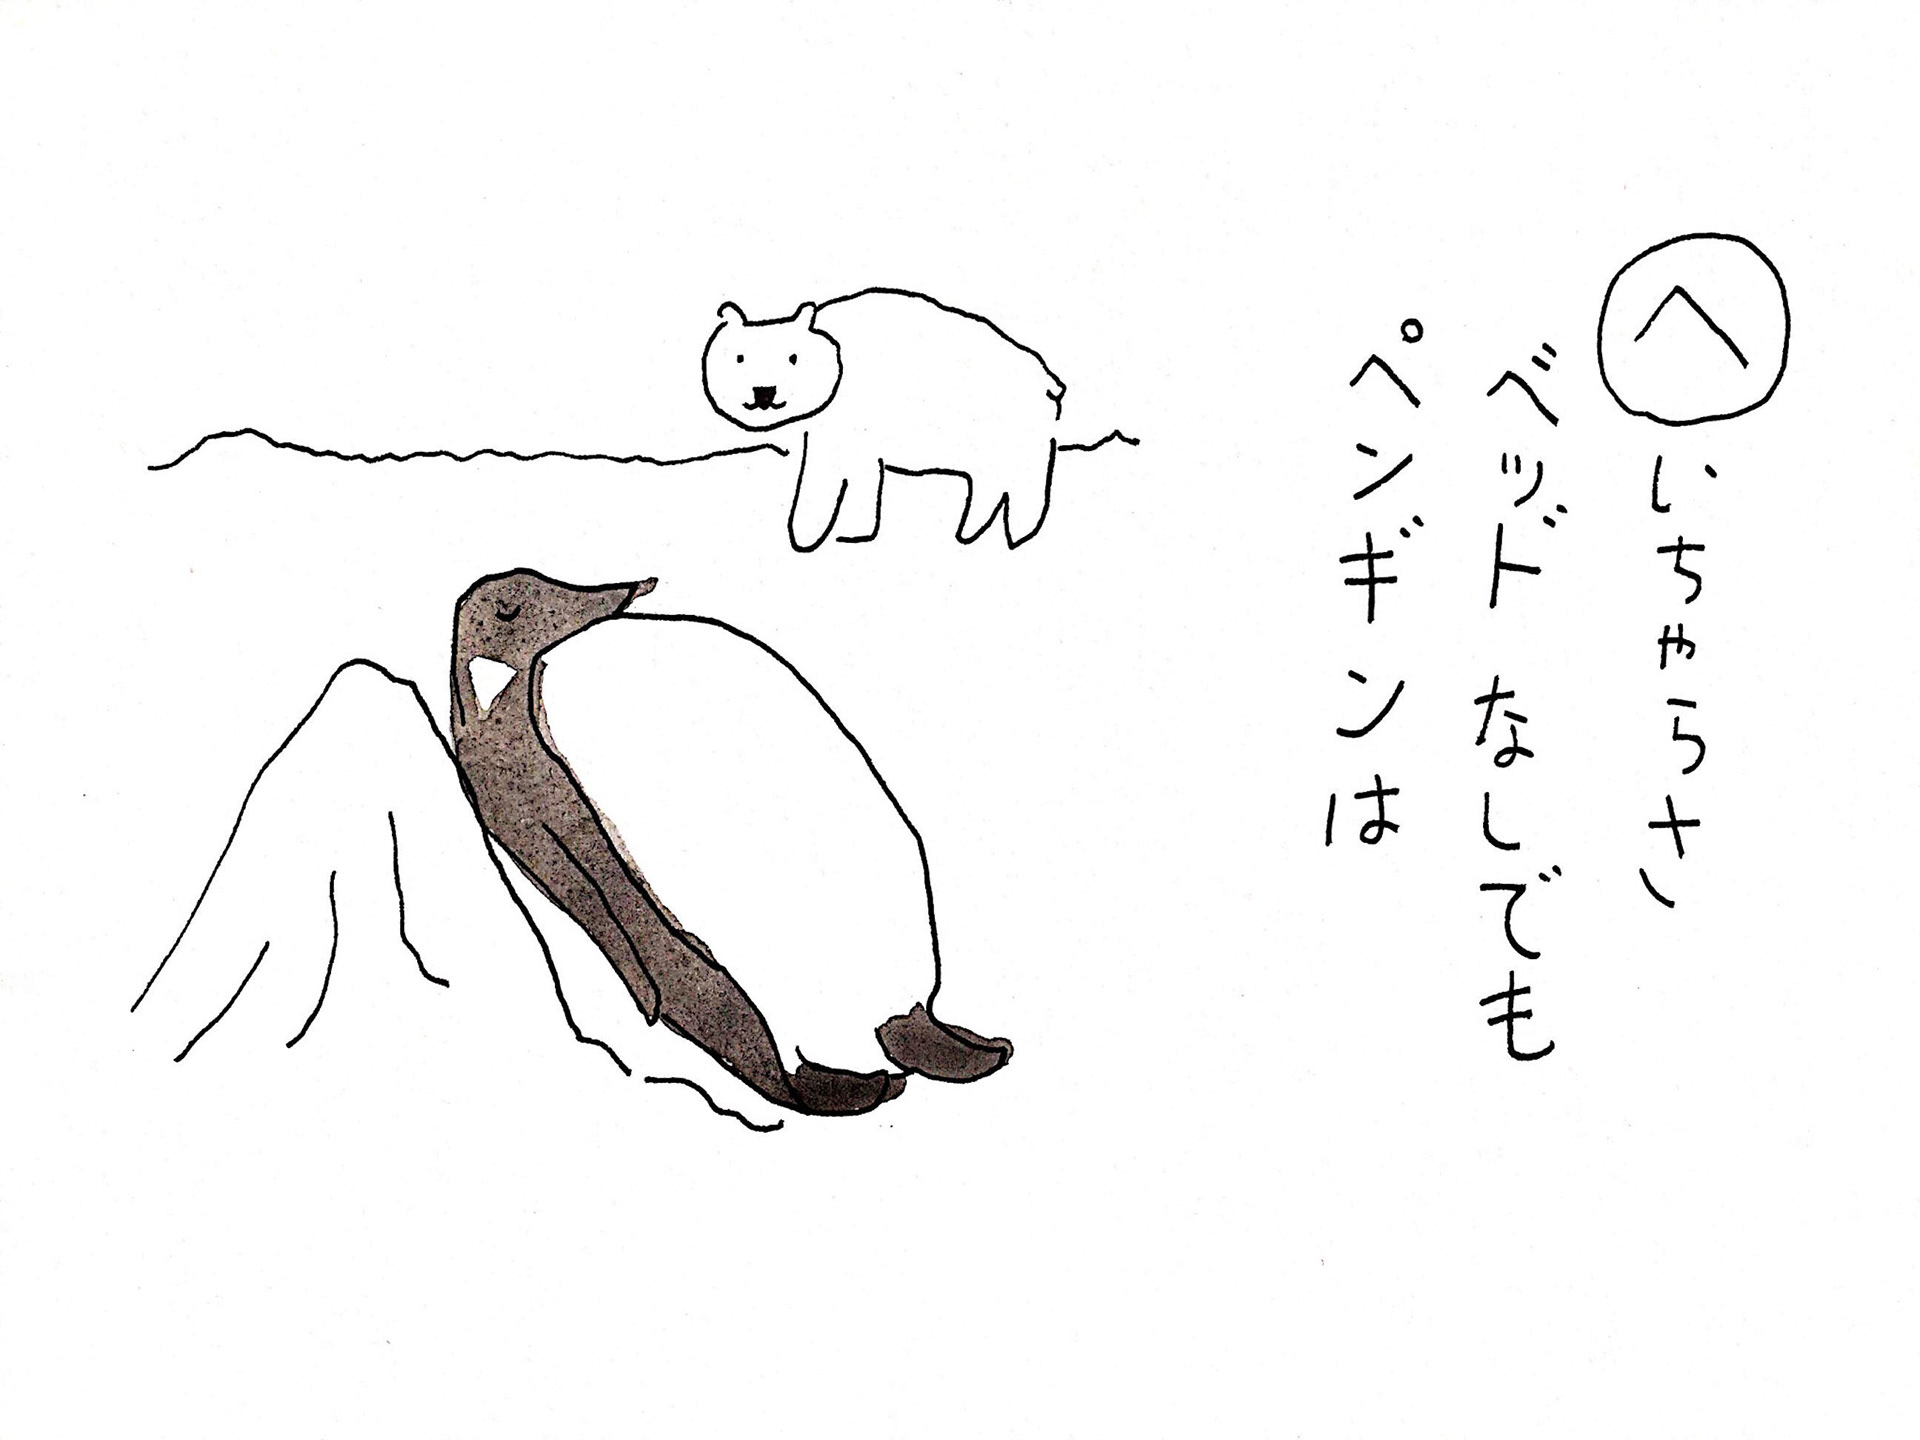 へいちゃらさ
ベッドなしでも
ペンギンは